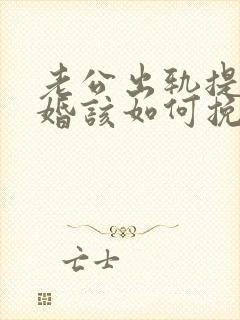 老公出轨提
婚該如何挽
亡士